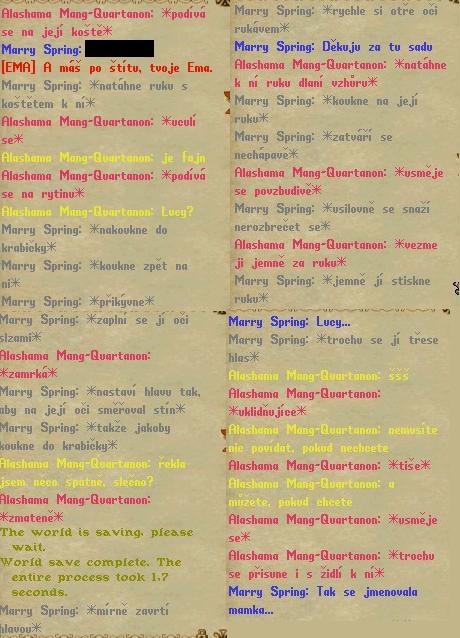 Alashama Mang-Quartanon: *podívá
se na její koště*
Marry Spring:
[EMA] A máš po štítu, tvoje Ema.
Marry Spring: *natáhne ruku s
koštětem k ní*
Alashama Mang-Quartanon: *uculí
se*
Alashama Mang-Quartanon: je fajn
Alashama Mang-Quartanon: *podívá
se na rytinu*
Alashama Mang-Quartanon: Lucy?
Marry Spring: *nakoukne do
krabičky*
Marry Spring: *koukne zpět na
ni*
Marry Spring: *přikývne*
Marry Spring: *zaplní se jí oči
slzami*
Alashama Mang-Quartanon:
*zamrká*
Marry Spring: *nastaví hlavu tak,
aby na její oči směřoval stín*
Marry Spring: *takže jakoby
koukne do krabičky*
Alashama Mang-Quartanon: řekla
jsem neco spatne, slečno?
Alashama Mang-Quartanon:
*zmateně*
The world is saving, please
wait.
World save complete. The
entire process took 1,7
seconds.
Marry Spring: *mírně zavrtí
hlavou*
Marry Spring: *rychle si otře oči
rukávem*
Marry Spring: Děkuju za tu sadu
Alashama Mang-Quartanon: *natáhne
k ní ruku dlaní vzhůru*
Marry Spring: *koukne na její
ruku*
Marry Spring: *zatváří se
nechápavě*
Alashama Mang-Quartanon: *usměje
se povzbudivě*
Marry Spring: *usilovně se snaží
nerozbrečet se*
Alashama Mang-Quartanon: *vezme
ji jemně za ruku*
Marry Spring: *jemně jí stiskne
ruku*
Marry Spring: Lucy...
Marry Spring: *trochu se jí třese
hlas*
Alashama Mang-Quartanon: ššš
Alashama Mang-Quartanon:
*uklidňujíce*
Alashama Mang-Quartanon: nemusíte
nic povídat, pokud nechcete
Alashama Mang-Quartanon: *tiše*
Alashama Mang-Quartanon: a
můžete, pokud chcete
Alashama Mang-Quartanon: *usměje
se*
Alashama Mang-Quartanon: *trochu
se přisune i s židlí k ní*
Marry Spring: Tak se jmenovala
mamka...